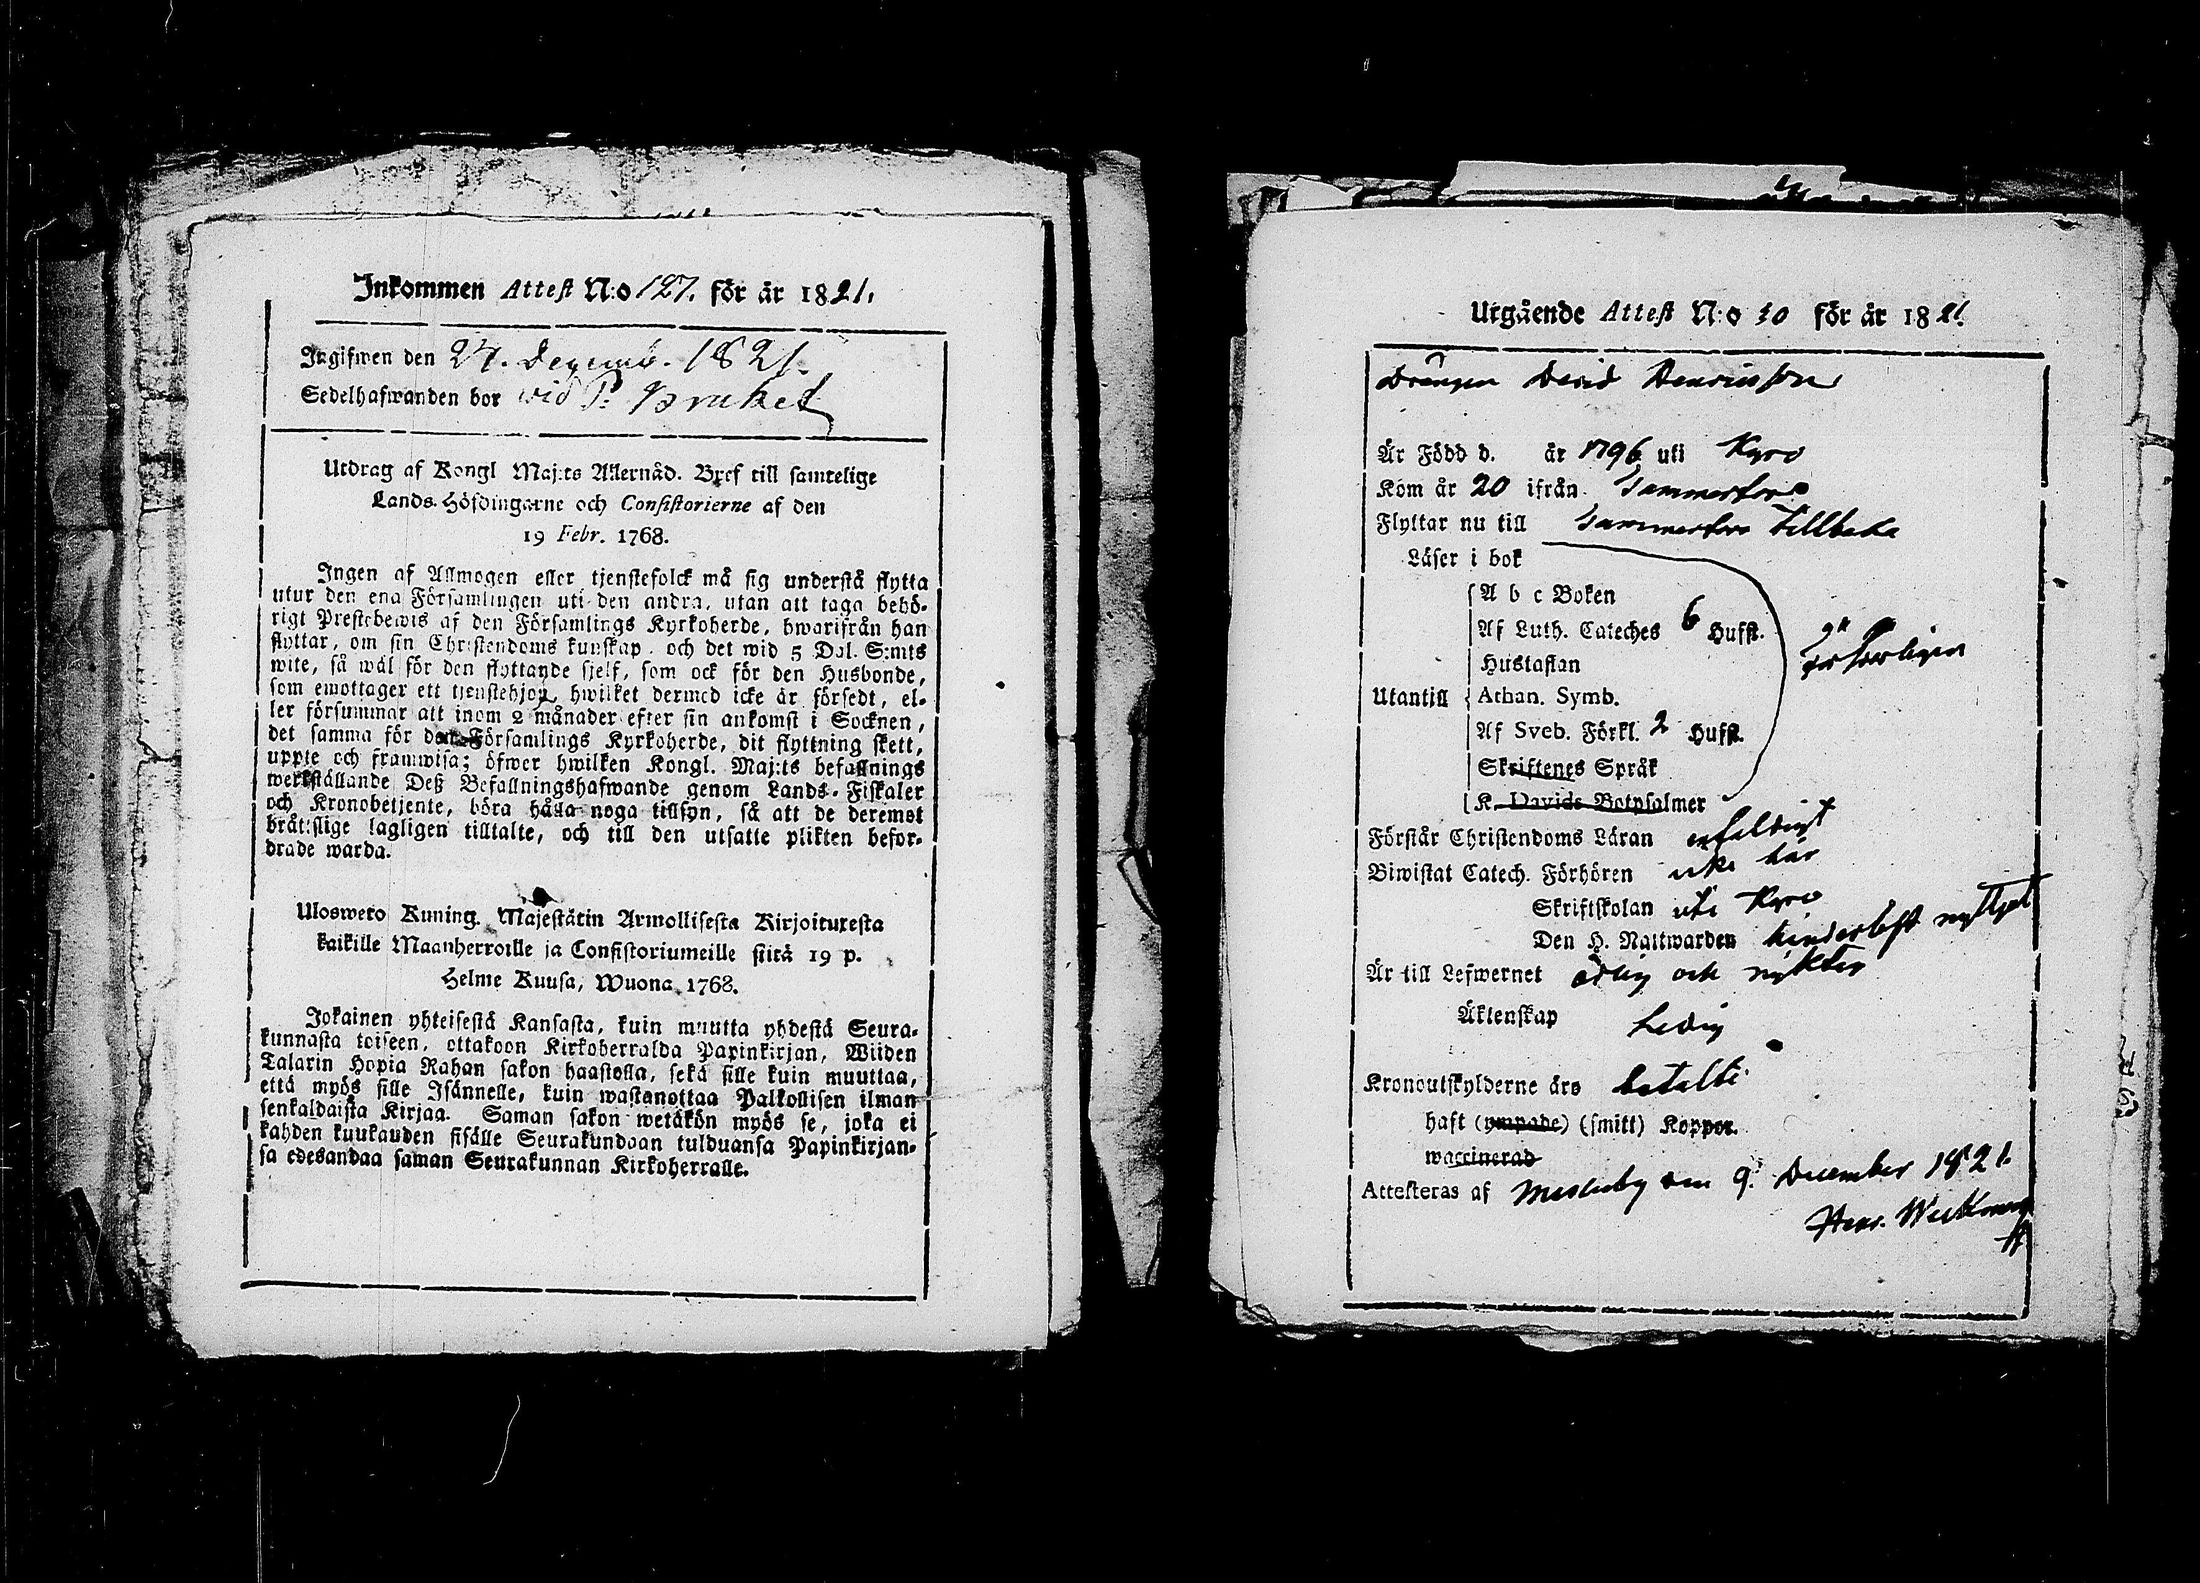 Inkommen Attest N:o 127. för år 1821.
Ingifwen den 24. Decemb. 1821.
Sedelhafwanden bor wid P: Bruket
Utdrag af Kongl Maj:ts Allernåd. Bref till samtelige
Lands-Höfdingarne och Consistorierne af den
19 Febr. 1768.
Ingen af Allmogen eller tjenstefolck må sig understå flytta
utur den ena Församlingen uti den andra, utan att taga behö-
rigt Prestebewis af den Församlings Kyrkoherde, hwarifrån han
flyttar, om sin Christendoms kunskap, och det wid 5 Dal. S:mts
wite, så wäl för den flyttande sjelf, som ock för den Husbonde,
som emottager ett tjenstehjon, hwilket dermed icke är försedt, el-
ler försummar att inom 2 månader efter sin ankomst i Socknen,
det samma för den Församlings Kyrkoherde, dit flyttning skett,
uppte och framwisa; öfwer hwilken Kongl. Maj:ts befallnings
werkställande Deß Befallningshafwande genom Lands-Fiskaler
och Kronobetjente, böra hålla noga tillsyn, så att de deremot
brättslige lagligen tilltalte, och till den utsatte plikten befor-
drade warda.
Ulosweto Kuning. Majestätin Armollisesta Kirjoituxesta
kaikille Maanherroille ja Consistoriumeille siitä 19 p.
Helme Kuusa, Wuona 1768.
Jokainen yhteisestä Kansasta, kuin muutta yhdestä Seura-
kunnasta toiseen, ottakoon Kirkoherralda Papinkirjan, Wiiden
Talarin Hopia Rahan sakon haastolla, sekä sille kuin muuttaa,
että myös sille Isännelle, kuin wastanottaa Palkollisen ilman
senkaldaista Kirjaa. Saman sakon wetäkön myös se, joka ei
kahden kuukauden sisälle Seurakundaan tulduansa Papinkirjan-
sa edesandaa saman Seurakunnan Kirkoherralle.
Utgående Attest N:o 30 för år 1821.
Drängen David Henricsson
Är Född d. år 1796 uti Kyro
Kom år 20 ifrån Tammerfors
Flyttar nu till Tammerfors tillbaka
Läser i bok
A b c Boken
Af Luth. Cateches 6 Hufst.
Hustaflan
Utantill Athan. Symb.
Af Sveb. Förkl. 2 Hufst.
Skriftenes Språk
K. Davids Botpsalmer
Förstår Christendoms Läran enfaldigt
Biwistat Catech. Förhören icke här
Skriftskolan uti Kyro
Den H. Nattwarden hinderlöst nyttjat
Är till Lefwernet ärlig och nykter
Äktenskap Ledig
Kronoutskylderne äro betalte
haft (ympade) (smitt) Koppor.
waccinerad
Attesteras af Messuby den 9. December 1821.
Henr. Weckman